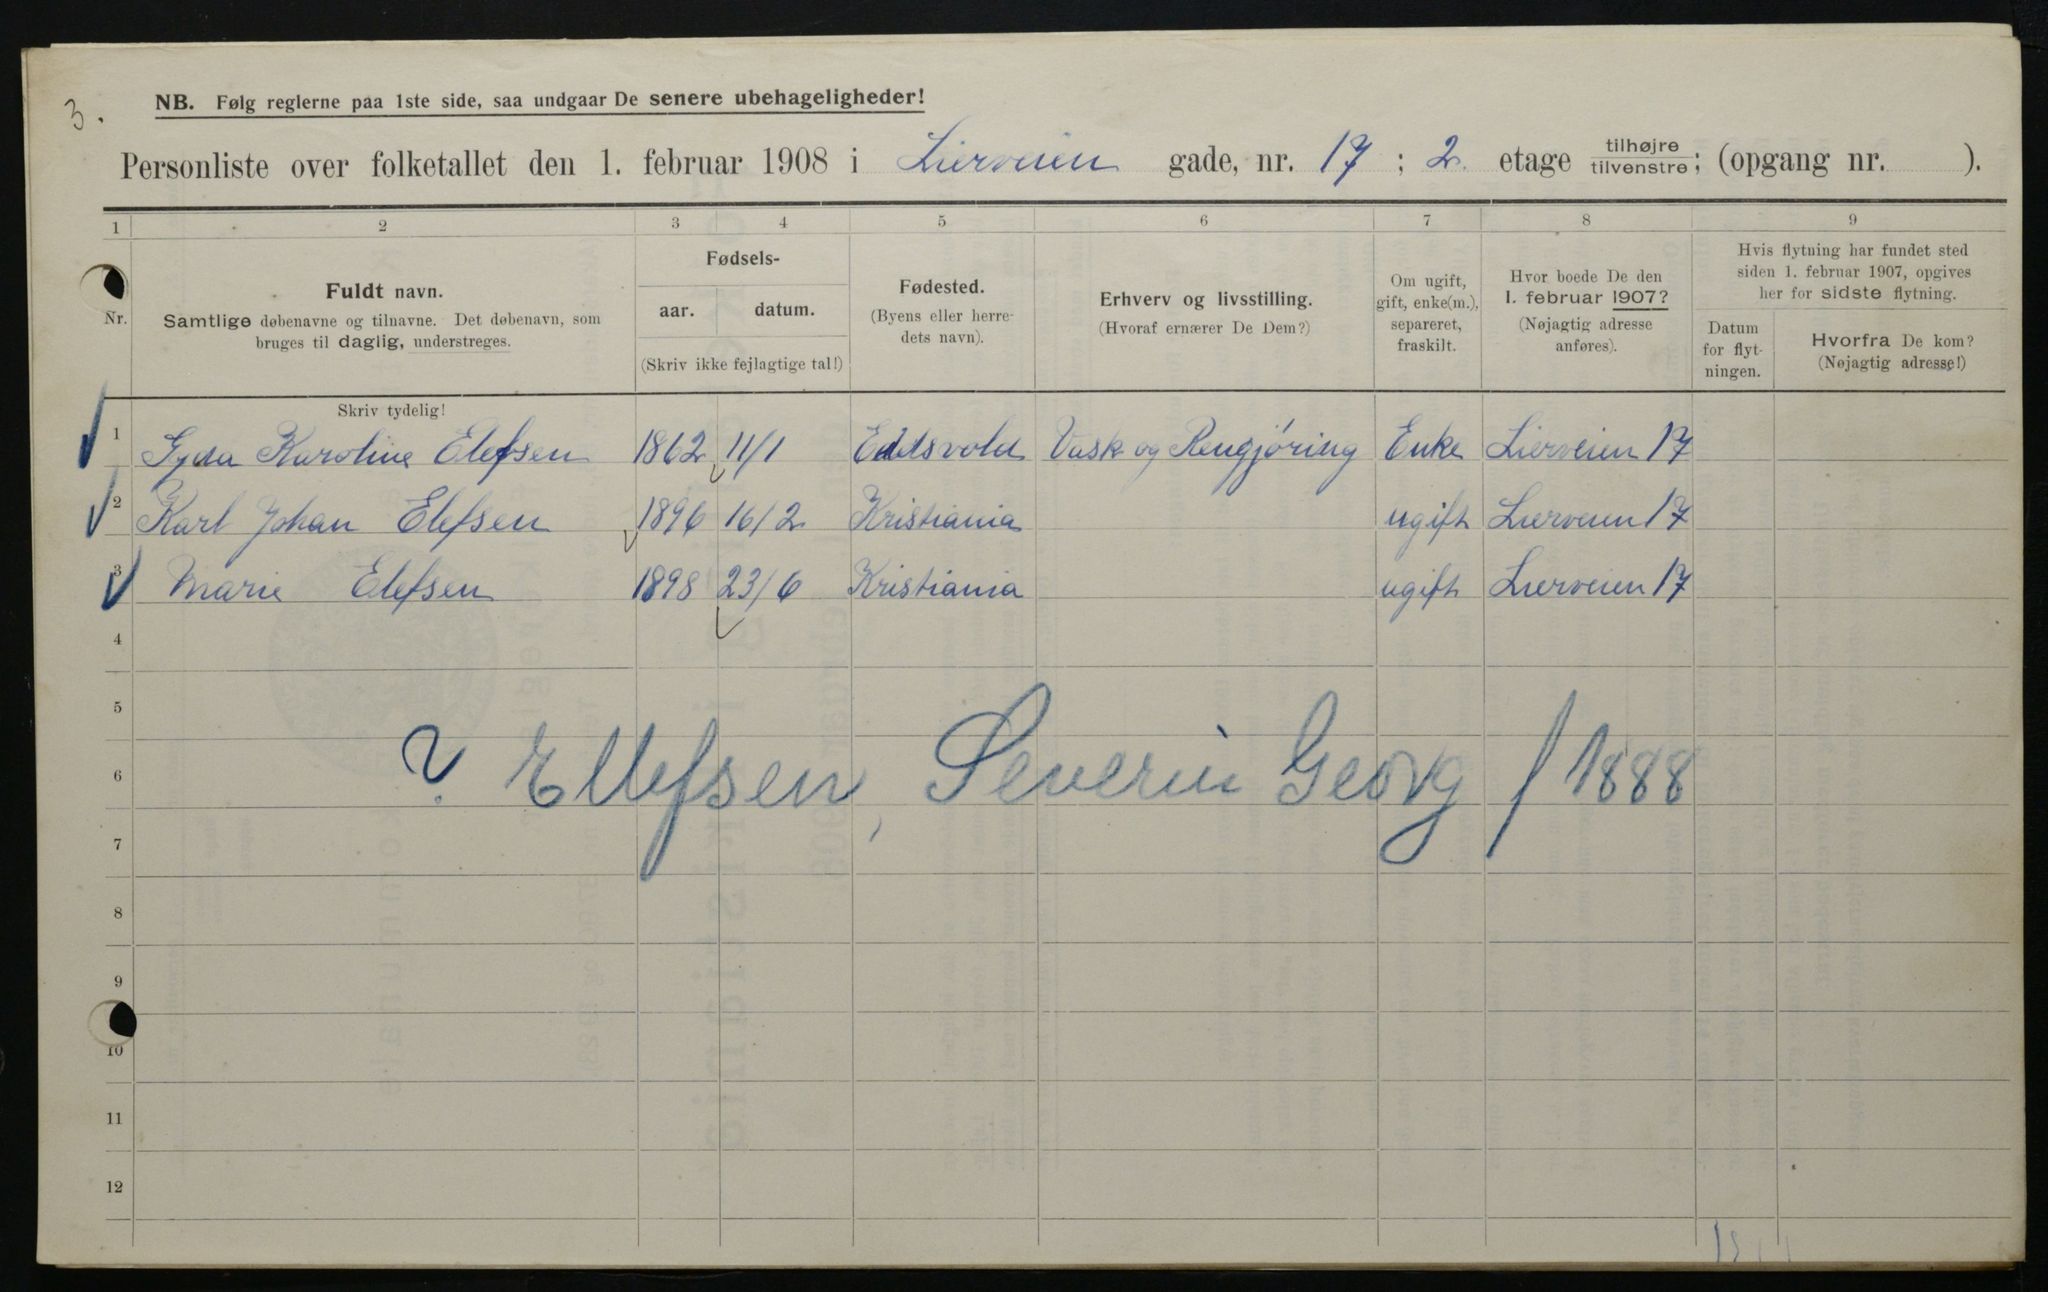 3.
NB. Følg reglerne paa 1ste side, saa undgaar De senere ubehageligheder!
Personliste over folketallet den 1. februar 1908 i Lierveien gade, nr. 17 ; 2. etage tilhøjre/tilvenstre; (opgang nr. ).
1 2 3 4 5 6 7 8 9
Nr.
Fuldt navn.
Samtlige døbenavne og tilnavne. Det døbenavn, som
bruges til daglig, understreges.
Fødsels-
aar. datum.
(Skriv ikke fejlagtige tal!)
Fødested.
(Byens eller herre-
dets navn).
Erhverv og livsstilling.
(Hvoraf ernærer De Dem?)
Om ugift,
gift, enke(m.),
separeret,
fraskilt.
Hvor boede De den
1. februar 1907?
(Nøjagtig adresse
anføres).
Hvis flytning har fundet sted
siden 1. februar 1907, opgives
her for sidste flytning.
Datum
for flyt-
ningen.
Hvorfra De kom?
(Nøjagtig adresse!)
Skriv tydelig!
1 Gyda Karoline Elefsen 1862 11/1 Eddsvold Vask og Rengjøring Enke Lierveien 17
2 Karl Johan Elefsen 1896 16/2 Kristiania ugift Lierveien 17
3 Marie Elefsen 1898 23/6 Kristiania ugift Lierveien 17
4
5
6 ? Ellefsen, Severin Georg f 1888
7
8
9
10
11
12